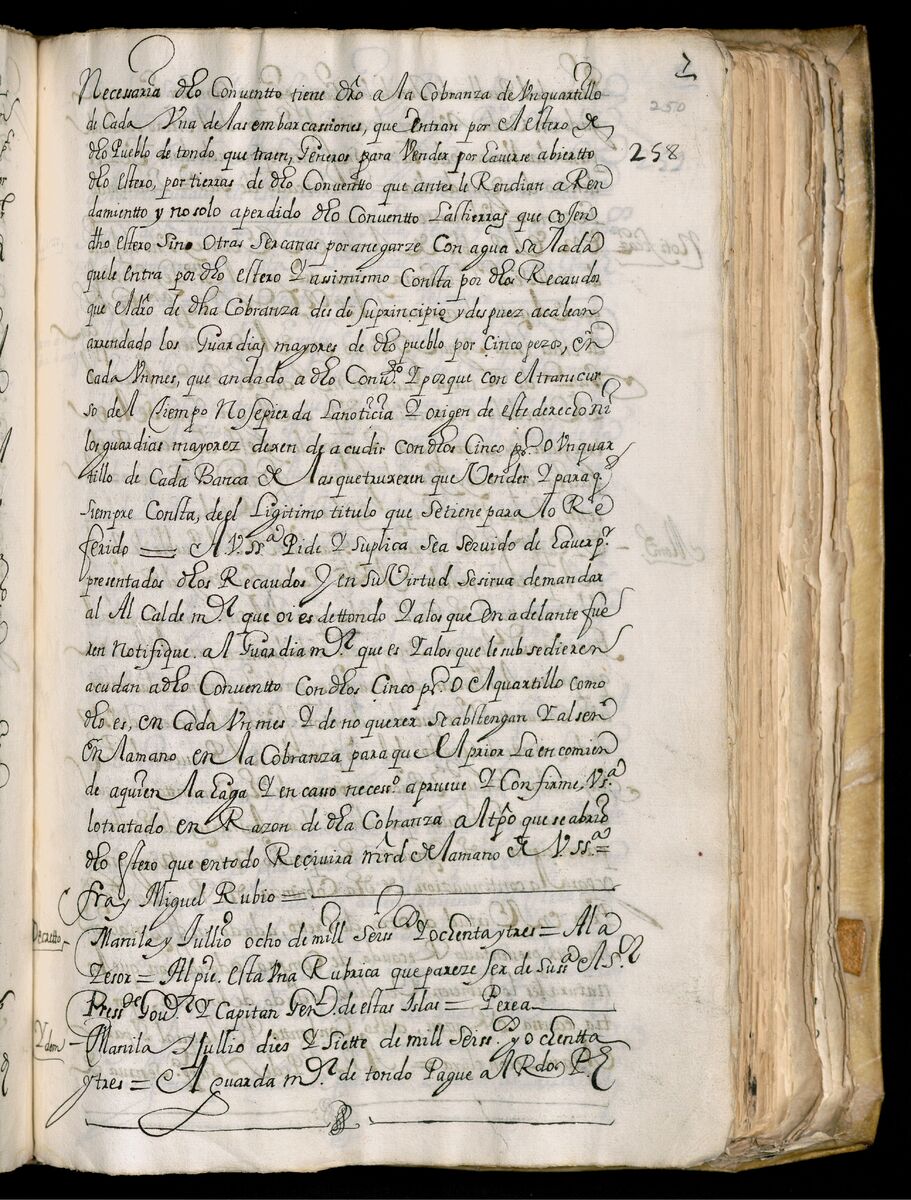 2
250
258
Necessaria dho Conventto tiene dro a la Cobranza de Vn quartillo
de Cada Vna de las embarcassiones, que entran por el estero de
dho Pueblo de tondo que traen, Generos para Vender por Eaverse abiertto
dho estero, por tierras de dho Conventto que antes le Rendian a Ren
damientto y no solo a perdido dho Conventto Las tierras que cojen
dho estero Sino Otras Sercanas por anegarze Con agua Salada
que le entra por dho estero Y assimismo Consta por dhos Recaudos
que el dro de dha Cobranza des de su principio y des puez aca lean
arrendado los Guardias mayores de dho pueblo por Cinco pezos, en
Cada Vn mes, que an dado a dho Convto Y porque con el transcur
so del tiempo No se pierda La noticia Y origen de este derecho ni
los guardias mayorez dexen de acudir con dhos Cinco ps. o Vn quar
tillo de Cada Banca de las que truxeren que Vender Y para q
siempre Consta, de el Ligitimo titulo que se tiene para lo Re
ferido = A V. SSa Pide Y suplica sea servido de Eaver pr.
presentados dhos Recaudos Y en su Virtud se sirva de mandar
al Alcalde mor que oi es de ttondo Y a los que en adelante fue
ren Notifique. al Guardia mor que es Y a los que le subsedieren
acudan a dho Conventto Con dhos Cinco ps. o el quartillo como
dho es, en Cada Vn mes Y de no querer Se abstengan Y alsen
la mano en la Cobranza para que el prior La encomien
de a quien la Eaga Y en casso necesso aprueve Y Confirme, Vsa
lo tratado en Razon de dha Cobranza al tpo que se abrio
dho estero que en todo Recivira mrd de la mano de V. SSa =
fray Miguel Rubio =
Decretto
Manila y Jullio ocho de mill Seiss Y ochenta y tres = Al a
Zesor = Al pie. esta Vna Rubrica que pareze ser de su ssa el Sr
Presste Govor Y Capitan Genl de estas Islas = Perea
Ydem
Manila Jullio dies Y siette de mill Seiss y ochentta
y tres = El guarda mor de tondo Pague al Rdo P.e